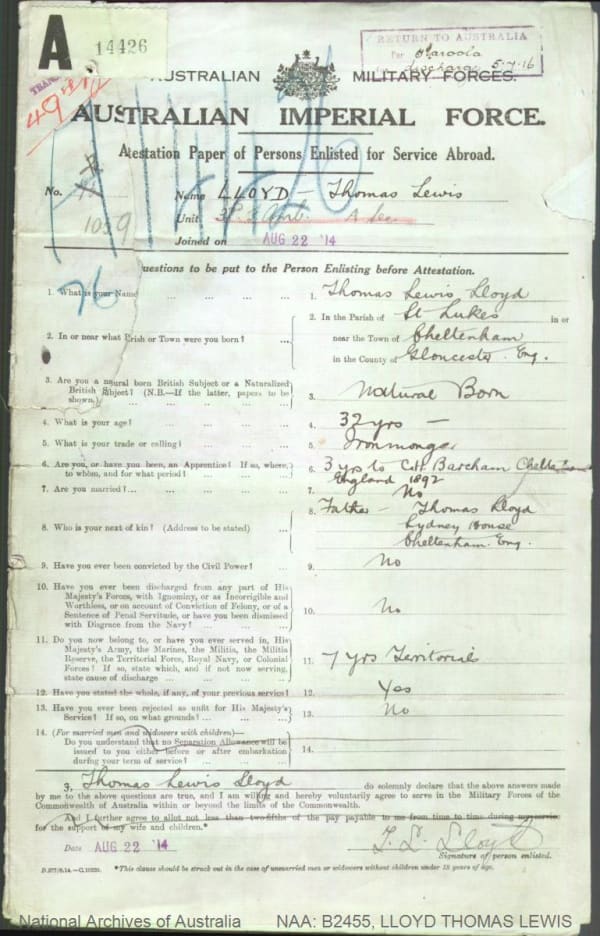 A 14426
RETURN TO AUSTRALIA
Per Karoola
discharge 5-7-16
AUSTRALIAN MILITARY FORCES.
AUSTRALIAN IMPERIAL FORCE.
Attestation Paper of Persons Enlisted for Service Abroad.
No. 1059
Name LLOYD - Thomas Lewis
Unit
Joined on AUG 22 '14
76
uestions to be put to the Person Enlisting before Attestation.
1. What is your Name ... ... ... ... 1. Thomas Lewis Lloyd
2. In or near what Parish or Town were you born? ... 2. In the Parish of St Lukes in or
near the Town of Cheltenham
in the County of Gloucester. Eng.
3. Are you a natural born British Subject or a Naturalized
British Subject? (N.B.—If the latter, papers to be
shown.) 3. Natural Born
4. What is your age? ... ... ... ... 4. 32 yrs —
5. What is your trade or calling? ... ... ... 5. Ironmonger
6. Are you, or have you been, an Apprentice? If so, where,
to whom, and for what period? ... ... ... 6. 3 yrs to Barcham Cheltenham
England 1892
7. Are you married? ... ... ... ... 7. No
8. Who is your next of kin? (Address to be stated) ... 8. Father - Thomas Lloyd
Sydney House
Cheltenham. Eng.
9. Have you ever been convicted by the Civil Power? ... 9. No
10. Have you ever been discharged from any part of His
Majesty's Forces, with Ignominy, or as Incorrigible and
Worthless, or on account of Conviction of Felony, or of a
Sentence of Penal Servitude, or have you been dismissed
with Disgrace from the Navy? ... ... ... 10. No
11. Do you now belong to, or have you ever served in, His
Majesty's Army, the Marines, the Militia, the Militia
Reserve, the Territorial Force, Royal Navy, or Colonial
Forces? If so, state which, and if not now serving,
state cause of discharge ... ... ... 11. 7 yrs Territorials
12. Have you stated the whole, if any, of your previous service? 12. Yes
13. Have you ever been rejected as unfit for His Majesty's
Service? If so, on what grounds? ... ... ... 13. No
14. (For married men and widowers with children)—
Do you understand that no Separation Allowance will be
issued to you either before or after embarkation
during your term of service? ... ... 14.
I, Thomas Lewis Lloyd do solemnly declare that the above answers made
by me to the above questions are true, and I am willing and hereby voluntarily agree to serve in the Military Forces of the
Commonwealth of Australia within or beyond the limits of the Commonwealth.
And I further agree to allot not less than two-fifths of the pay payable to me from time to time during my service
for the support of my wife and children.*
Date AUG 22 '14 T. L. Lloyd
Signature of person enlisted.
*This clause should be struck out in the case of unmarried men or widowers without children under 18 years of age.
National Archives of Australia NAA: B2455, LLOYD THOMAS LEWIS